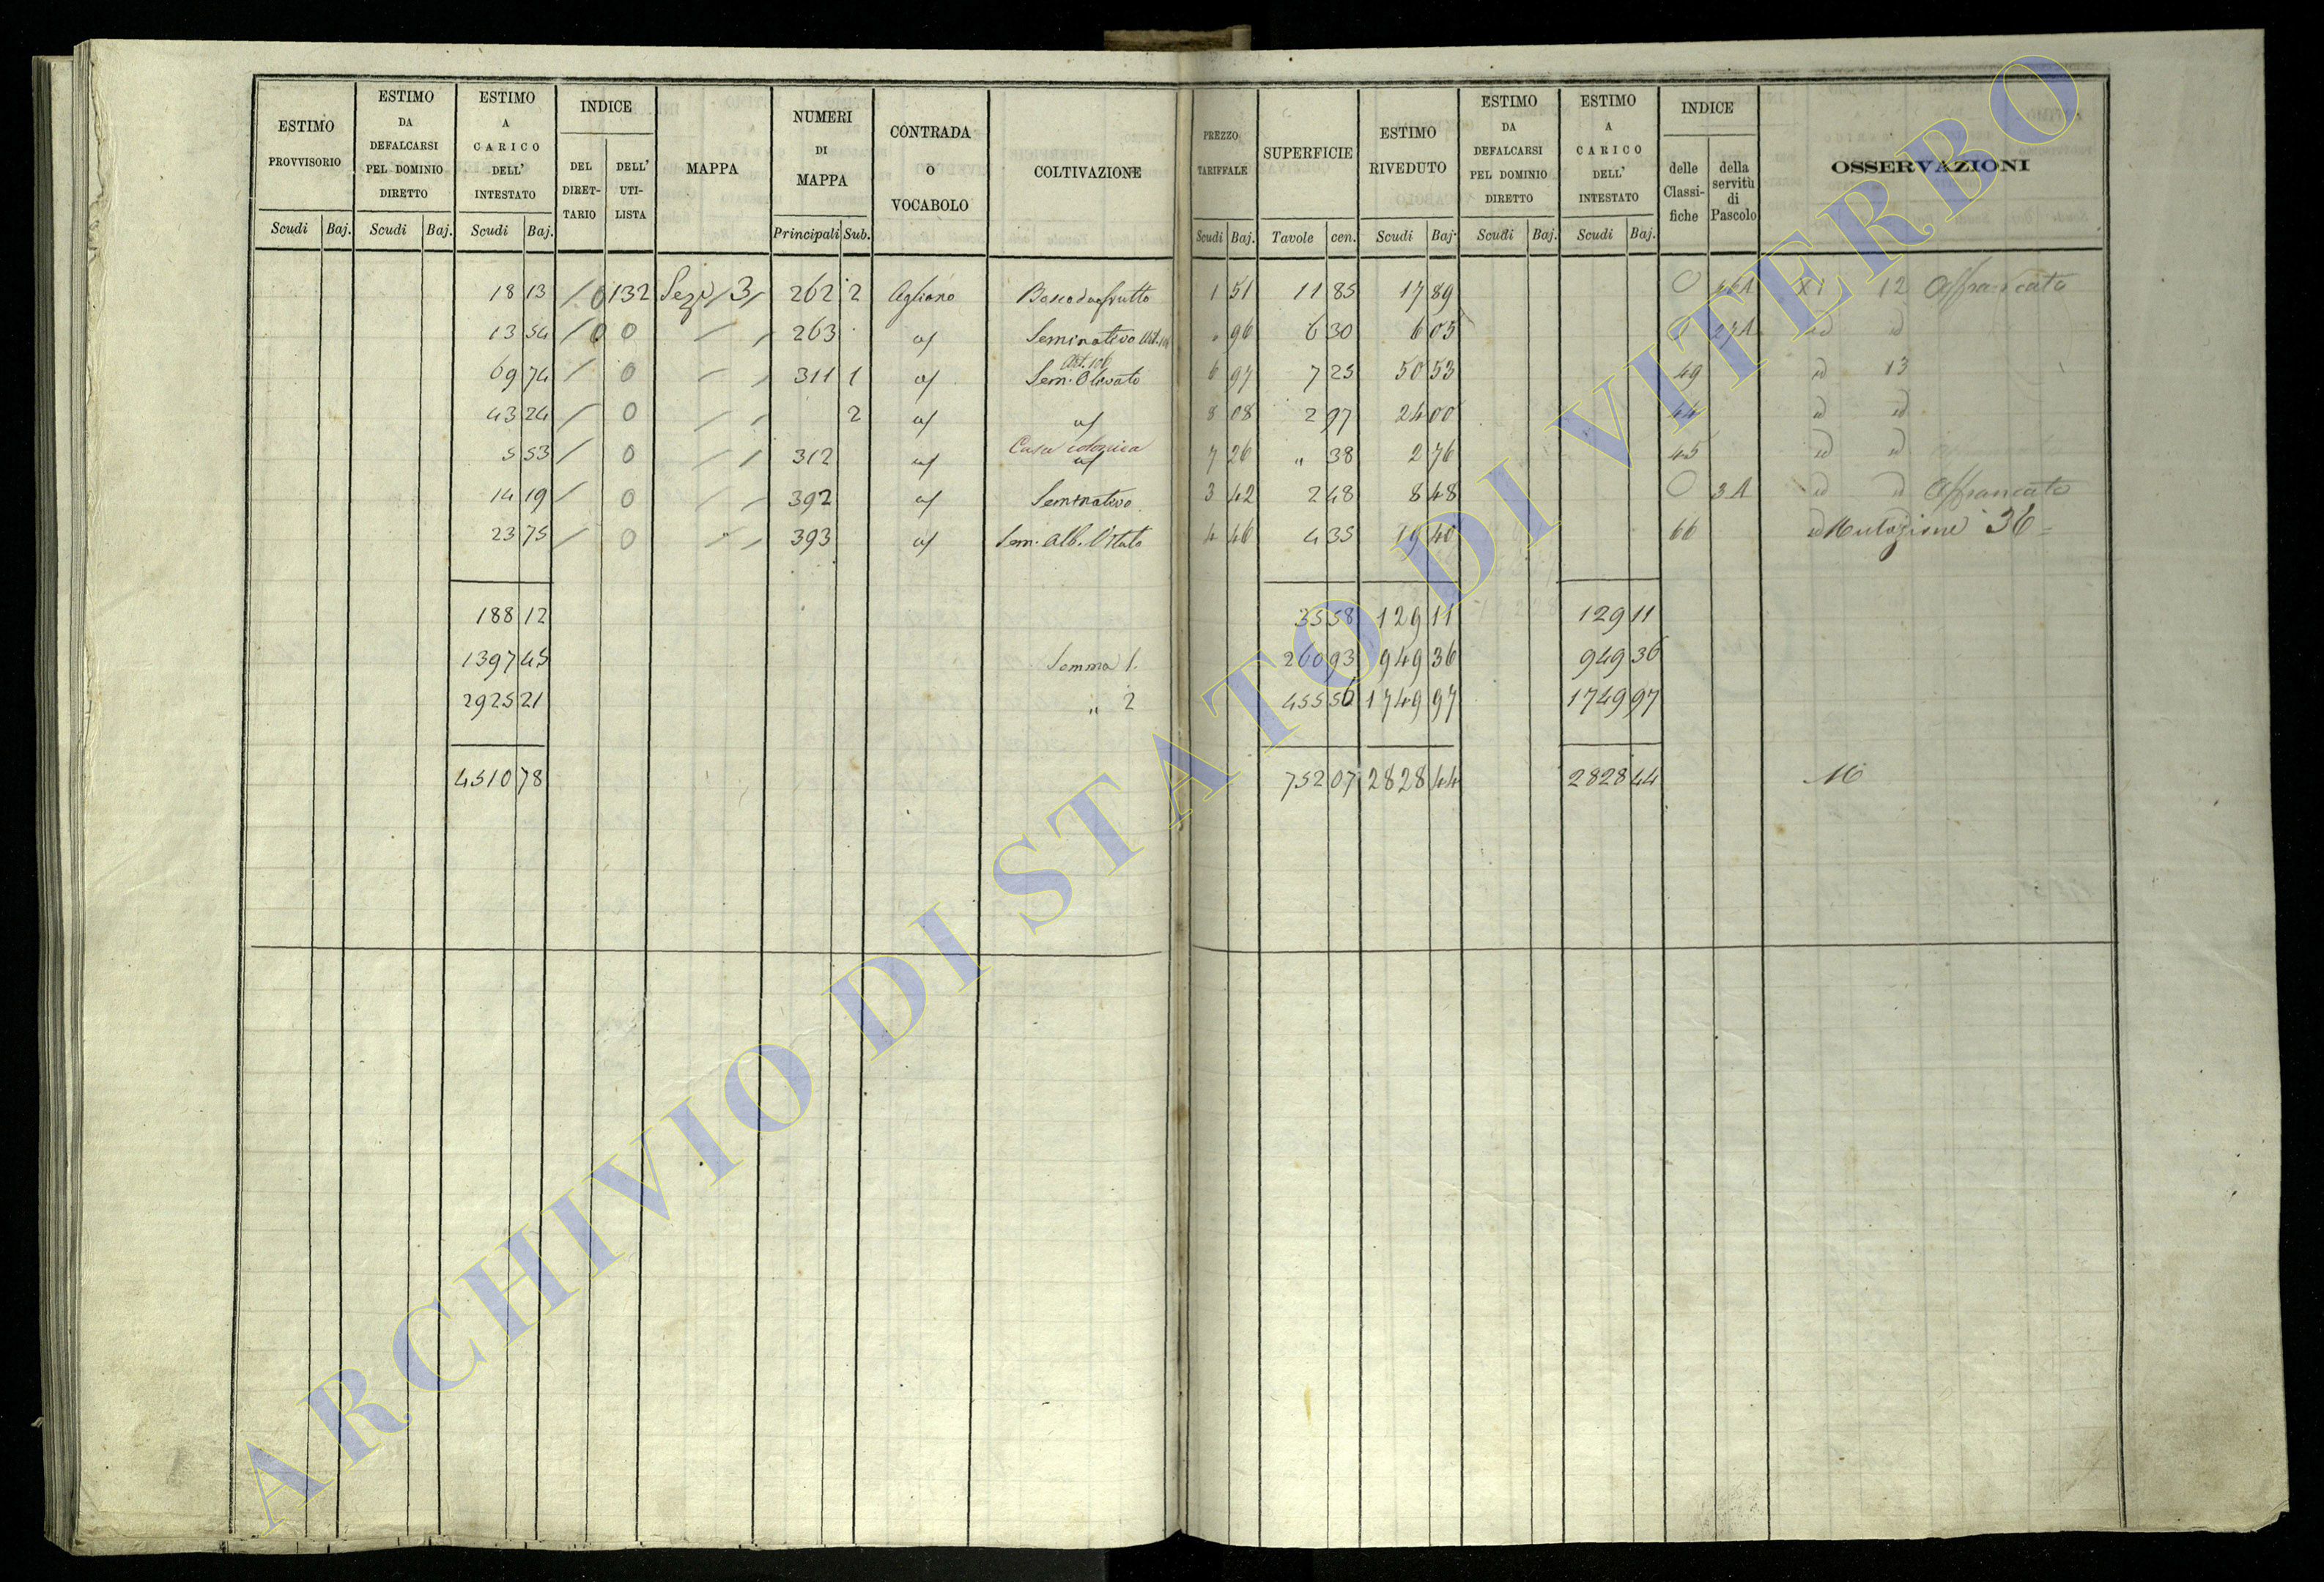 ESTIMO PROVVISORIO Scudi Baj.
ESTIMO DA DEFALCARSI PEL DOMINIO DIRETTO Scudi Baj.
ESTIMO A CARICO DELL' INTESTATO Scudi Baj.
INDICE DEL DIRET-TARIO DELL' UTI-LISTA
MAPPA
NUMERI DI MAPPA Principali Sub.
CONTRADA O VOCABOLO
COLTIVAZIONE
PREZZO TARIFFALE Scudi Baj.
SUPERFICIE Tavole cen.
ESTIMO RIVEDUTO Scudi Baj.
ESTIMO DA DEFALCARSI PEL DOMINIO DIRETTO Scudi Baj.
ESTIMO A CARICO DELL' INTESTATO Scudi Baj.
INDICE delle Classi-fiche della servitù di Pascolo
OSSERVAZIONI
18 13 / 0 132 Sez. 3 262 2 Agliano 1 51 11 85 17 89 0 XI 12 Affrancata
13 54 / 0 0 263 Seminativo " 96 6 30 6 05 0 27A id id
69 74 / 0 311 1 Sem. Olivato 6 97 7 25 50 53 49 id 13
43 24 / 0 2 8 08 2 97 24 00 44 id id
5 53 / 0 312 Casa colonica 7 26 " 38 2 76 45 id id
14 19 / 0 392 Seminativo 3 42 2 48 8 48 0 3A id id Affrancato
23 75 / 0 393 Sem. Alb. Vitato 4 46 4 35 19 40 66 id Mutazione 36
188 12 35 58 129 11 129 11
1397 45 Somma 1. 260 93 949 36 949 36
2925 21 " 2 455 56 1749 97 1749 97
4510 78 752 07 2828 44 2828 44
ARCHIVIO DI STATO DI VITERBO